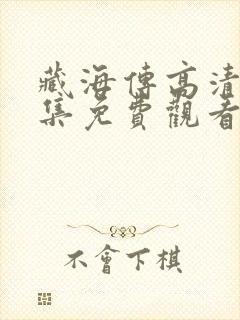 藏海傳高清
集免費觀看
不會下棋